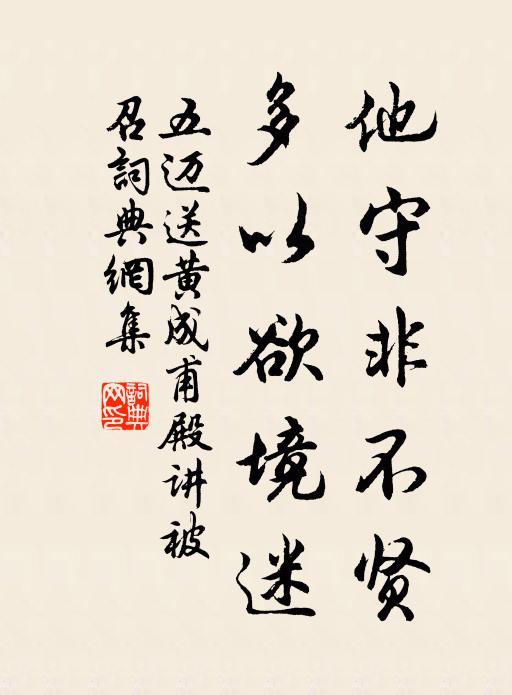 他守非不贤
多以欲境迷
五迈送黄成甫殿讲被
召詞典網集
詞典
网印